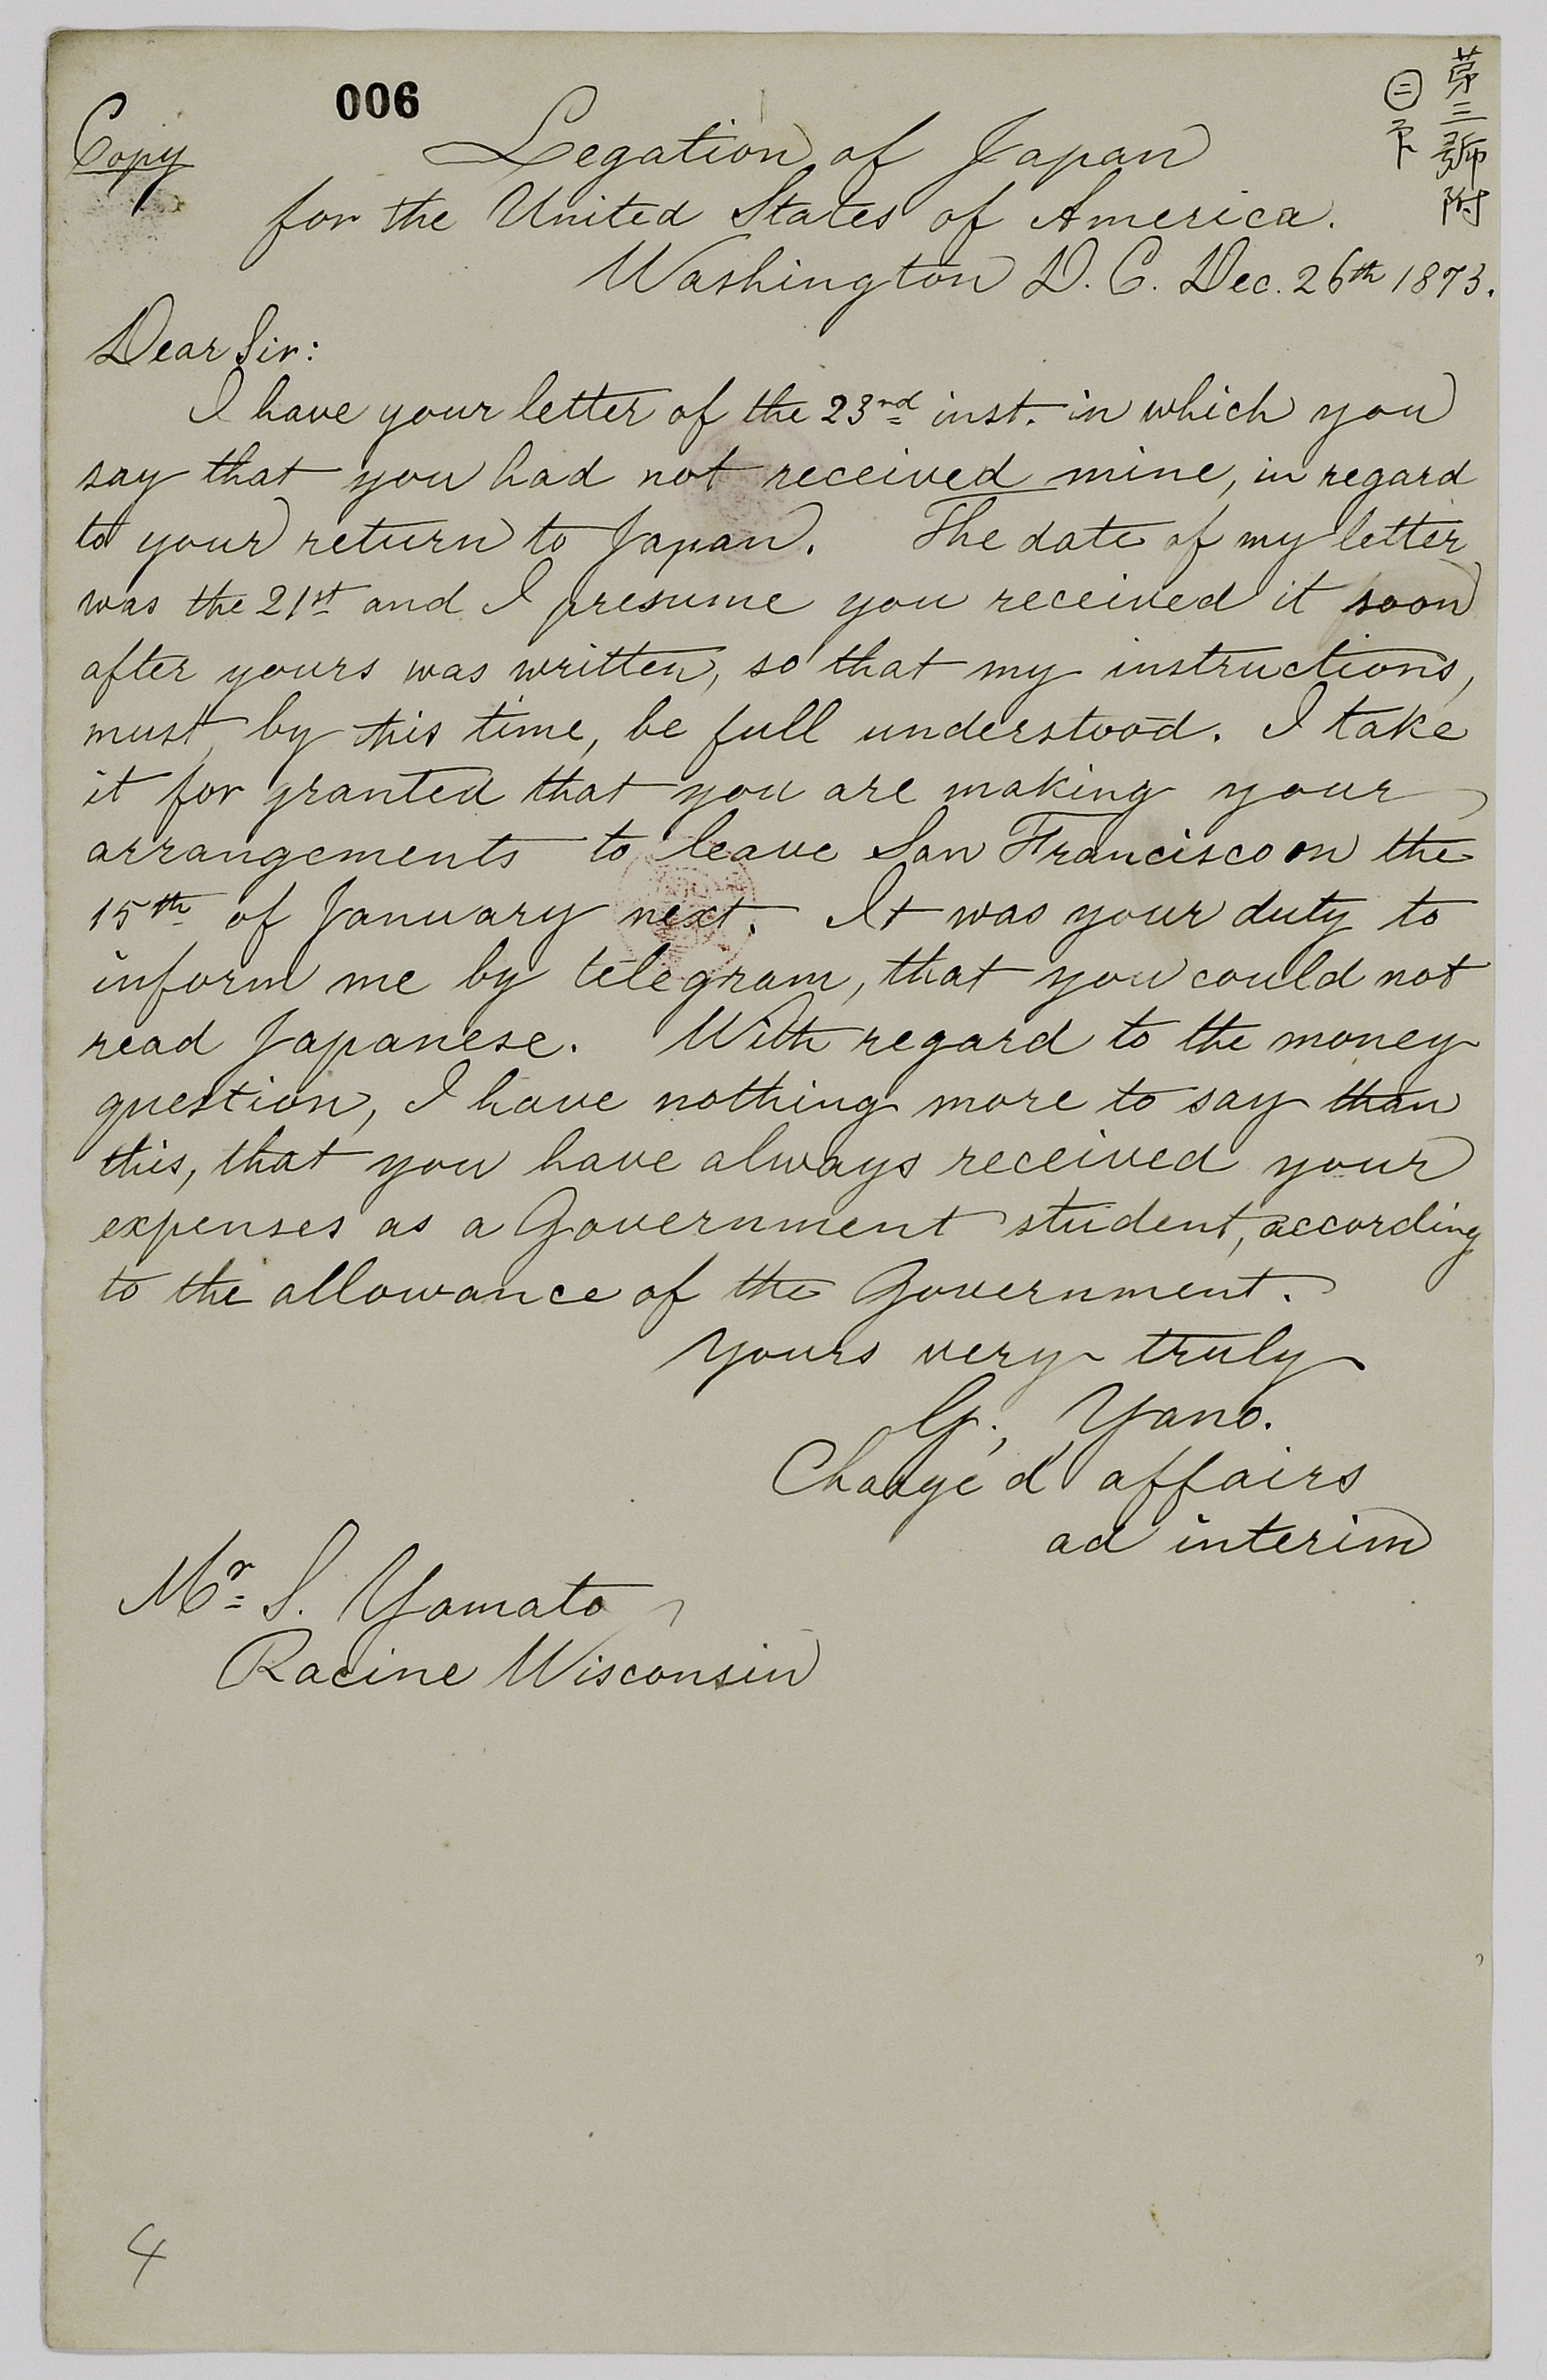 006
第三號附
㊁印
Copy
Legation of Japan
for the United States of America.
Washington D. C. Dec. 26th 1873.
Dear Sir:
I have your letter of the 23rd inst. in which you
say that you had not received mine, in regard
to your return to Japan. The date of my letter
was the 21st and I presume you received it soon
after yours was written, so that my instructions,
must, by this time, be full understood. I take
it for granted that you are making your
arrangements to leave San Francisco on the
15th of January next. It was your duty to
inform me by telegram, that you could not
read Japanese. With regard to the money
question, I have nothing more to say than
this, that you have always received your
expenses as a Government student, according
to the allowance of the Government.
Yours very truly
G., Yano.
Chargé d' affairs
ad interim
Mr. S. Yamato
Racine Wisconsin
4